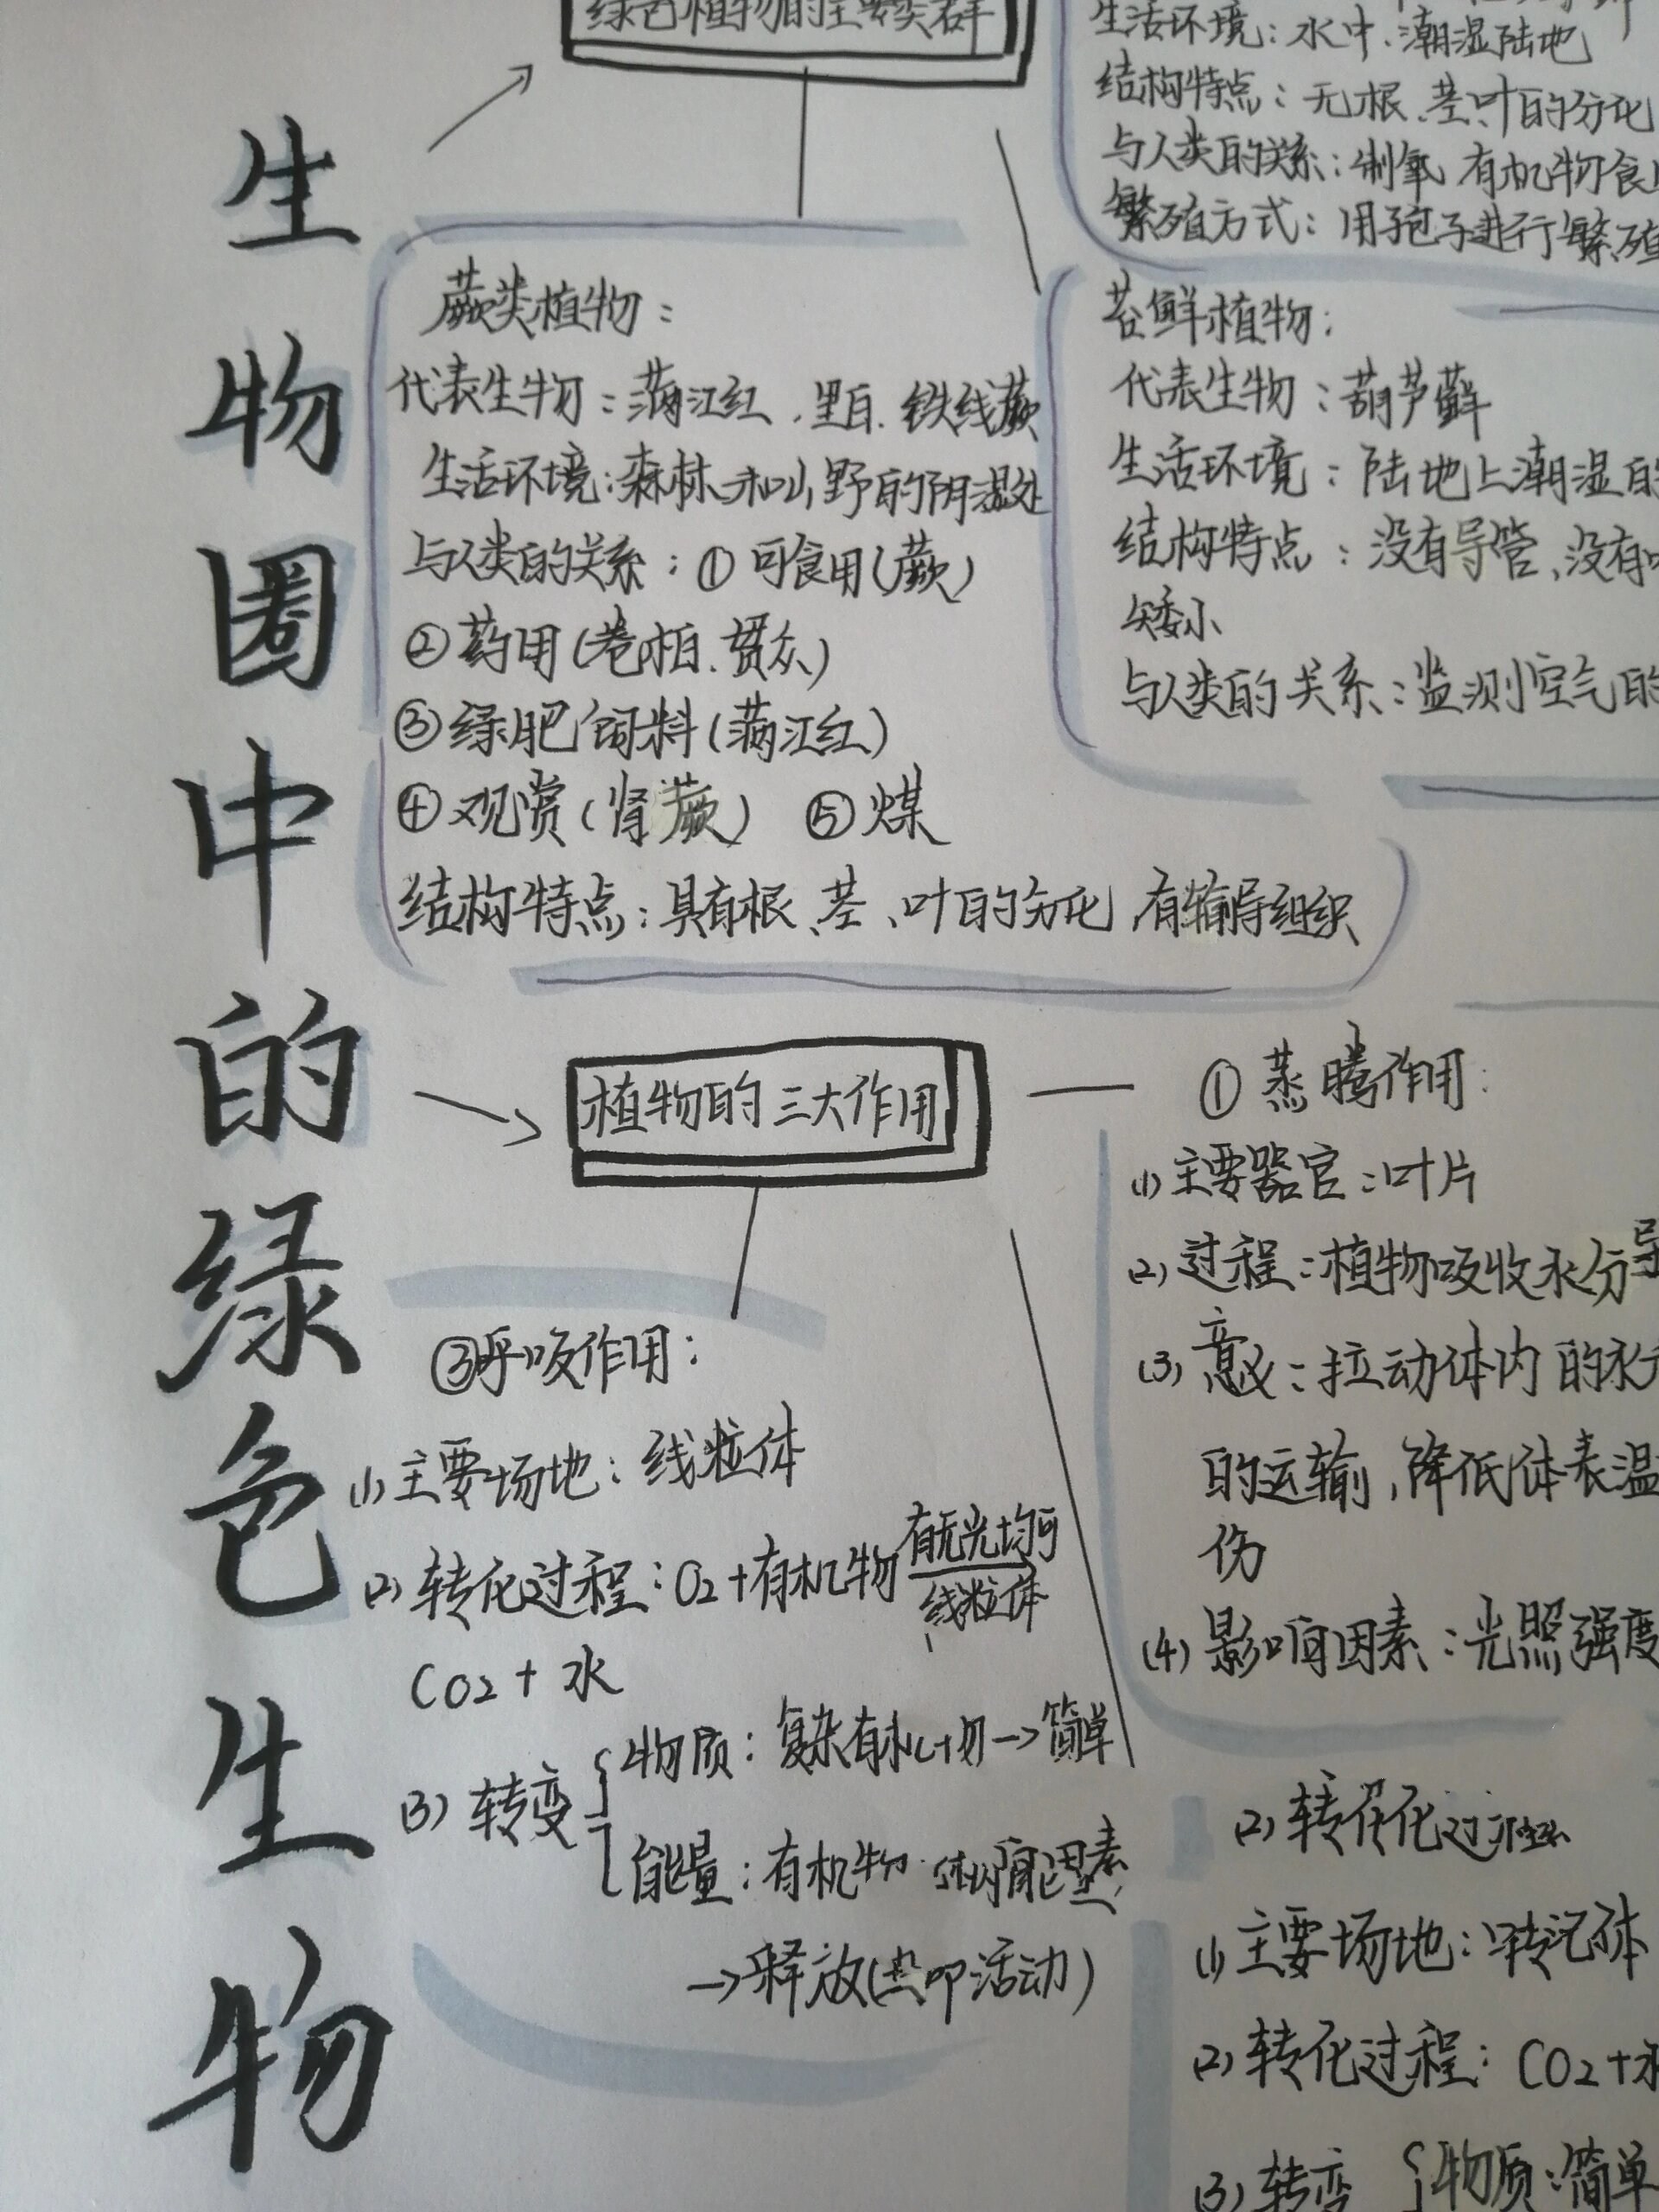 生物圈中的绿色生物
绿色植物的主要类群
生活环境：水中、潮湿陆地
结构特点：无根、茎、叶的分化
与人类的关系：制氧 有机物 食
繁殖方式：用孢子进行繁殖
蕨类植物：
代表生物：满江红、里白、铁线蕨
生活环境：森林和山野的阴湿处
与人类的关系：①可食用(蕨)
②药用(卷柏、贯众)
③绿肥饲料(满江红)
④观赏(肾蕨) ⑤煤
结构特点：具有根、茎、叶的分化，有输导组织
苔鲜植物：
代表生物：葫芦藓
生活环境：陆地上潮湿的
结构特点：没有导管、没有
矮小
与人类的关系：监测空气的
植物的三大作用
①蒸腾作用：
(1)主要器官：叶片
(2)过程：植物吸收水分导
(3)意义：拉动体内的水
的运输，降低体表温
伤
(4)影响因素：光照强度
③呼吸作用：
(1)主要场地：线粒体
(2)转化过程：O2+有机物 有无光均可
线粒体
CO2+水
(3)转变 物质：复杂有机物→简单
能量：有机物
→释放( 活动)
(2)转化过程
(1)主要场地：
(2)转化过程：CO2+水
(3)转变 物质：简单